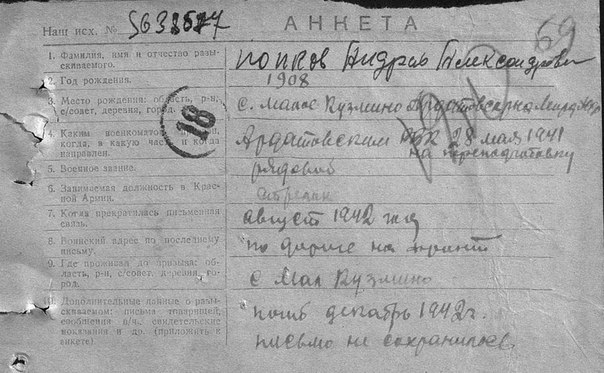 Наш исх. № 5638577
АНКЕТА
69
1. Фамилия, имя и отчество разыскиваемого.
Попков Андрей Александрович
2. Год рождения.
1908
3. Место рождения: область, р-н, с/совет, деревня, город.
с. Малое Кузмино Ардатовского р-на Морд. АССР
18
4. Каким военкоматом призван, когда, в какую часть и когда направлен.
Ардатовским РВК 28 мая 1941
на переподготовку
5. Военное звание.
рядовой
6. Занимаемая должность в Красной Армии.
стрелок
7. Когда прекратилась письменная связь.
август 1942 год
8. Воинский адрес по последнему письму.
по дороге на фронт
9. Где проживал до призыва: область, р-н, с/совет, деревня, город.
с Мал Кузмино
10. Дополнительные данные о разыскиваемом: письма товарищей, сообщения в/ч, свидетельские показания и др. (приложить к анкете)
погиб декабрь 1942 г.
письмо не сохранилось